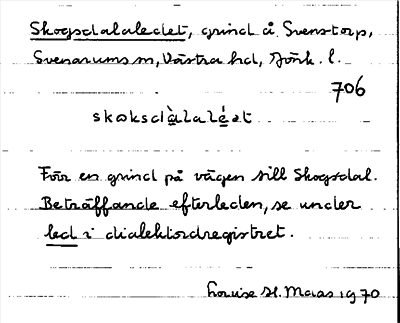 Skogsdalaledet, grind å Svenstorp,
Svenarums sn, Västra hd, Jönk. l.
706
skoksdàlaléət
För en grind på vägen till Skogsdal.
Beträffande efterleden, se under
led i dialektordregistret.
Louise H. Maas 1970